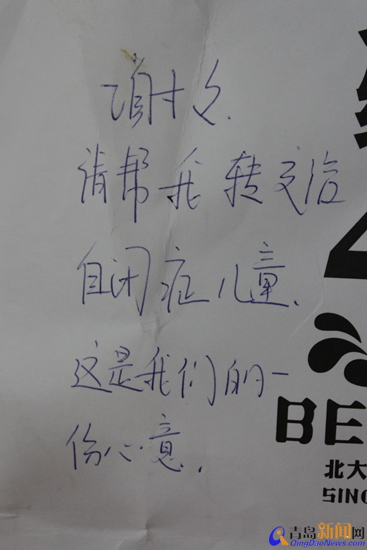 谢谢.
请帮我转交给
自闭症儿童.
这是我们的一
份心意.
BE
北大
SINC
青岛新闻网
QingDaoNews.com